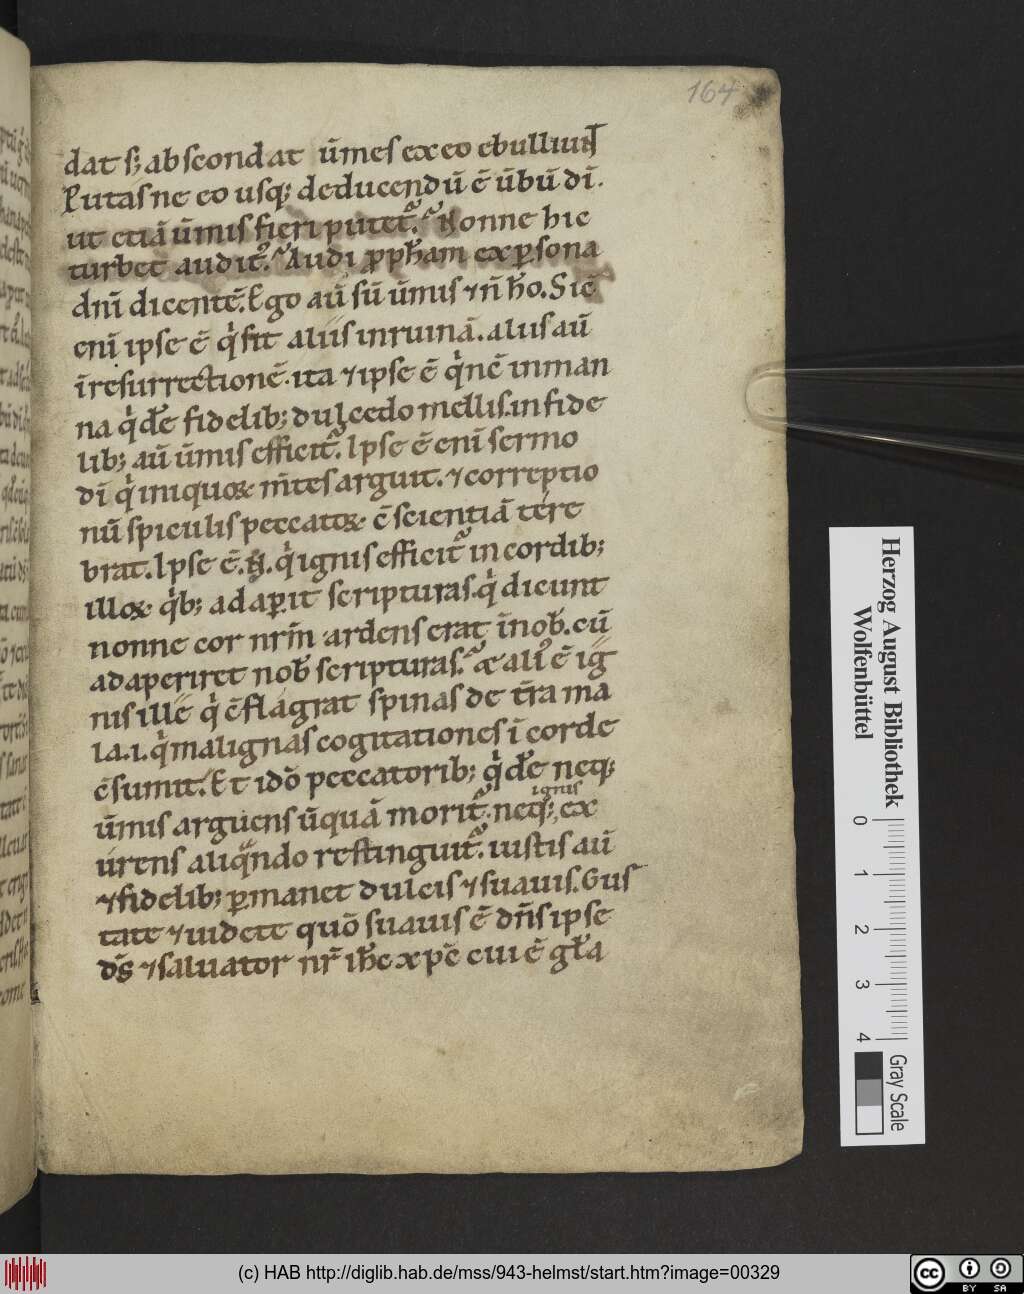 164
dat s; abscondat ūmes ex eo ebulliunt
Putasne eo usq; deducendū ē ūbū dī.
ut etiā ūmis fieri putet᷑. Nonne hic
turbet᷑ audit᷑. Audi ꝓpħam ex ꝑsona
dnī dicentē. Ego aū sū ūmis ⁊ n̄ ho. Sic
enī ipse ē qͥ fit aliis in ruinā. aliis aū
ī resurrectionē. ita ⁊ ipse ē qͥ nē in man
na qͥdē fidelib; dulcedo mellis. infide
lib; aū ūmis efficit᷑. Ipse ē enī sermo
dī qͥ iniquoꝝ m̄tes arguit. ⁊ correptio
nū spiculis peccatoꝝ cscientiā tere
brat. Ipse ē. N. qͥ ignis efficit᷑ in cordib;
illoꝝ qͥb; adaꝑit scripturas. qͥ dicunt
nonne cor nrm̄ ardens erat in nob̄. cū
adaperiret nob̄ scripturas. æ ali ē ig
nis ille qͥ cflagrat spinas de tra ma
la .i. qͥ malignas cogitationes ī corde
csumit. Et idō peccatorib; qͥdē neq;
ūmis arguens ūquā morit᷑. neq;
ignis
ex
urens aliqͣndo restinguit᷑. iustis aū
⁊ fidelib; ꝑmanet dulcis ⁊ suauis. Gus
tate ⁊ uidete quō suauis ē dn̄s ipse
d̄s ⁊ saluator nr̄ ihc xpc cui ē gła
Herzog August Bibliothek
Wolfenbüttel
0 1 2 3 4
Gray Scale
(c) HAB http://diglib.hab.de/mss/943-helmst/start.htm?image=00329
cc BY SA